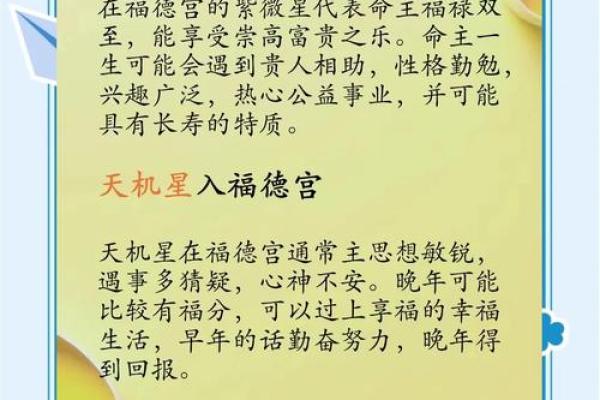 在福德宫的紫微星代表命主福禄双
至，能享受崇高富贵之乐。命主一
生可能会遇到贵人相助，性格勤勉，
兴趣广泛，热心公益事业，并可能
具有长寿的特质。
天机星入福德宫
天机星在福德宫通常主思想敏锐，
遇事多猜疑，心神不安。晚年可能
比较有福分，可以过上享福的幸福
生活，早年的话勤奋努力，晚年得
到回报。